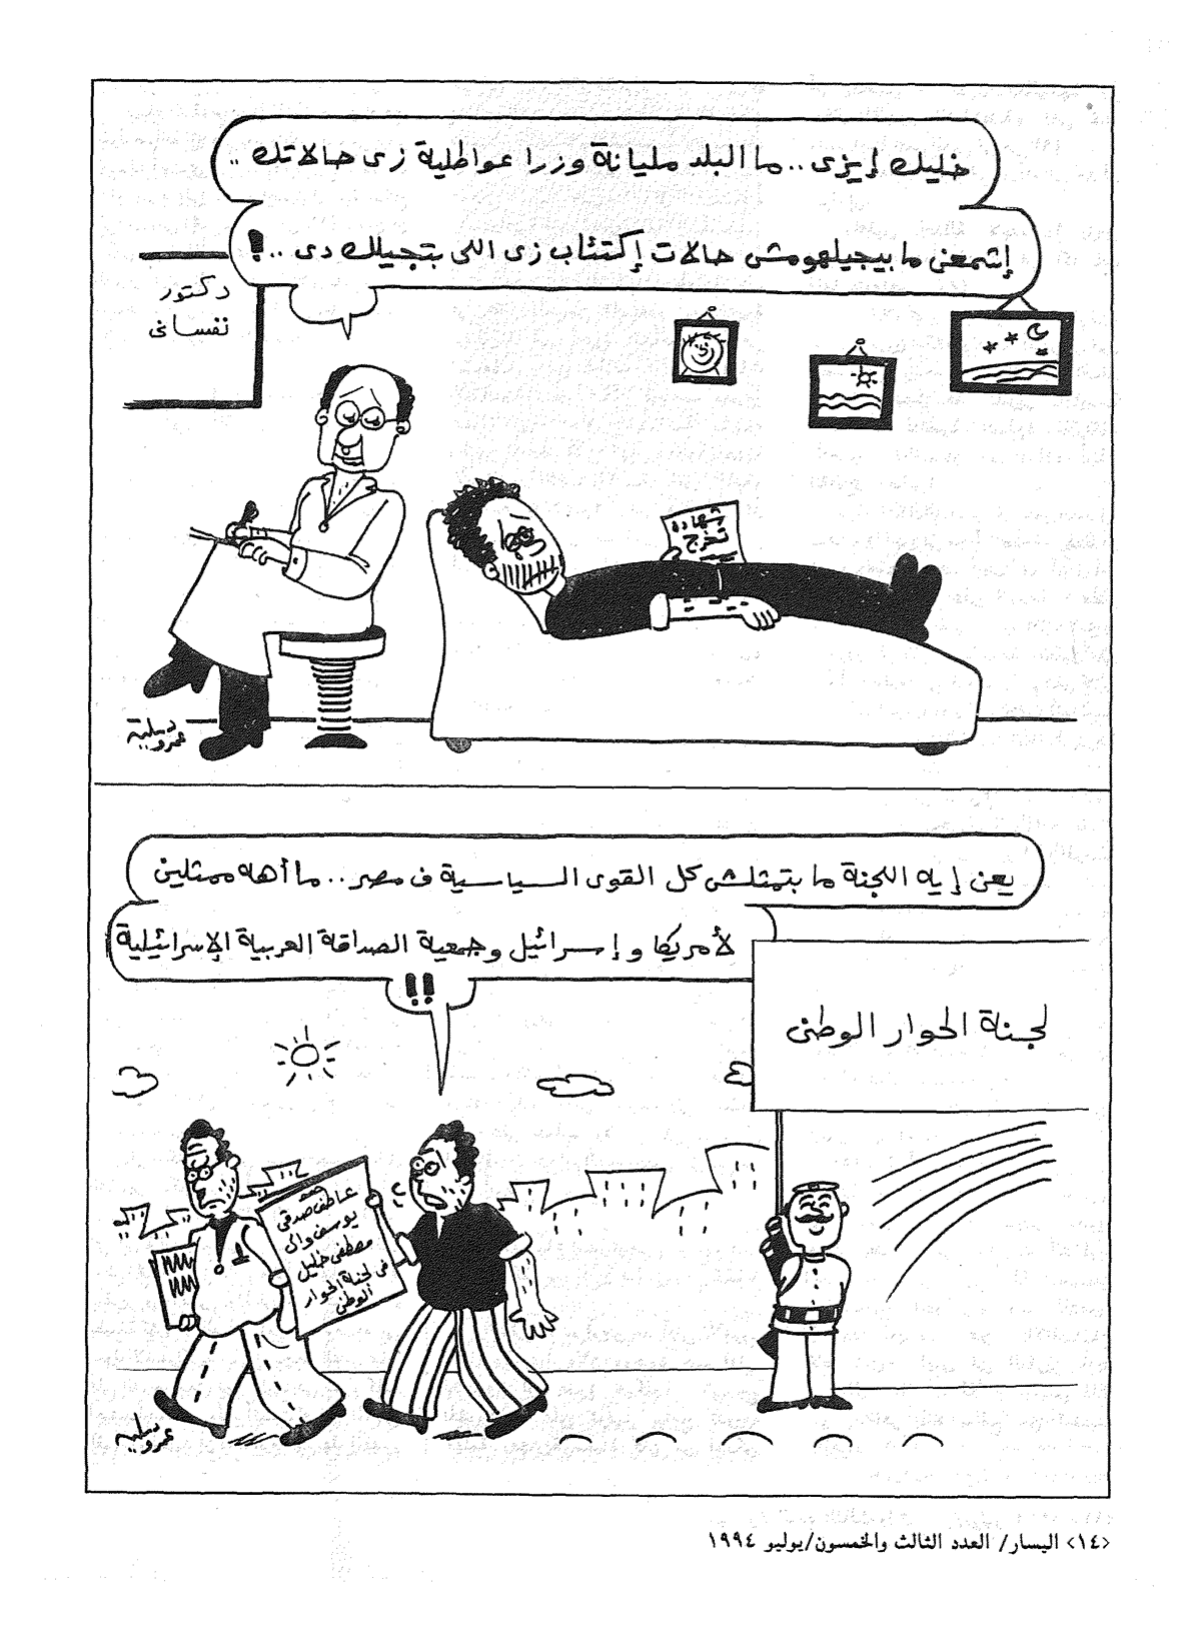 خليك إيزى.. ما البلد مليانة وزرا عواطلية زى حالاتك..
إشمعنى ما بيجيلهومش حالات إكتئاب زى اللى بتجيلك دى..!
دكتور
نفسانى
شهادة
تخرج
عمرو سليم
يعنى إيه اللجنة ما بتمثلش كل القوى السياسية فى مصر.. ما أهه ممثلين
لأمريكا وإسرائيل وجمعية الصداقة العربية الإسرائيلية
!!
لجنة الحوار الوطنى
عاطف صدقى
يوسف والى
مصطفى خليل
فى لجنة الحوار
الوطنى
عمرو سليم
<١٤> اليسار/ العدد الثالث والخمسون/يوليو ١٩٩٤